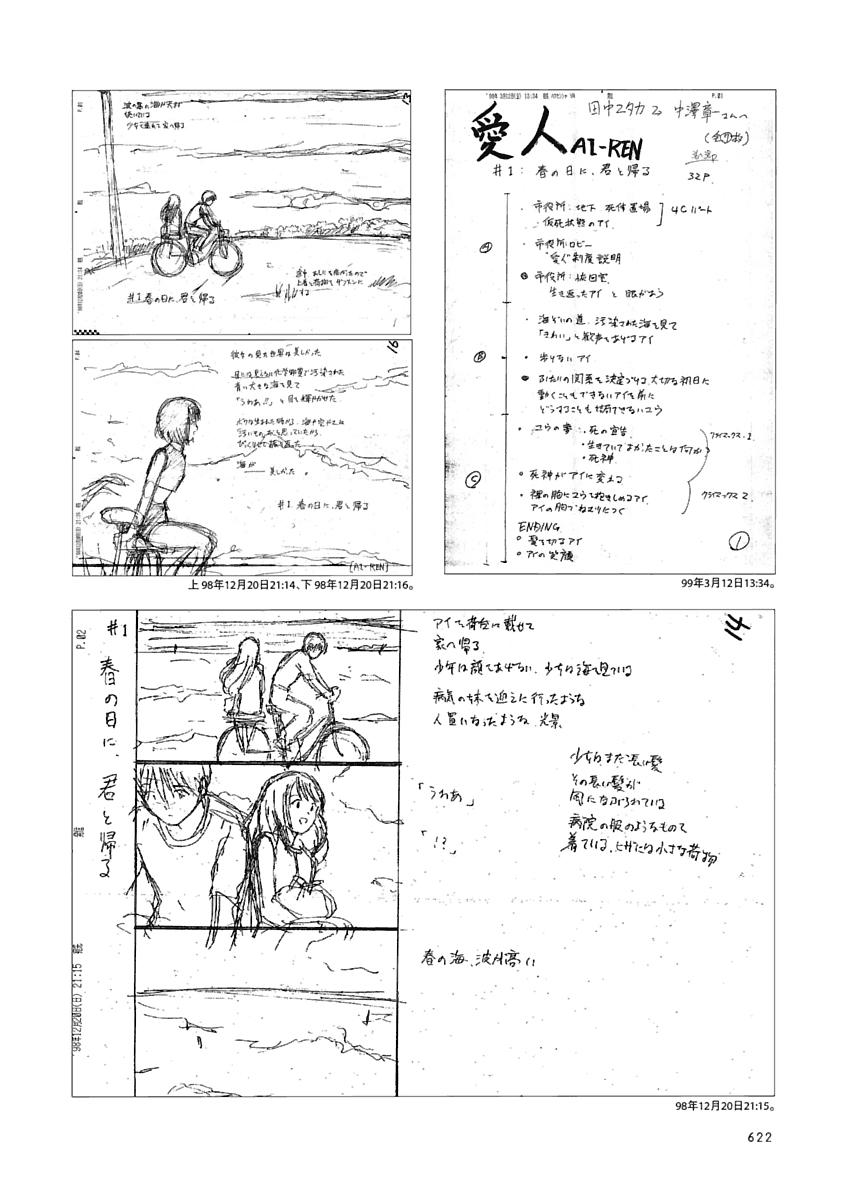 少女を連れて家へ帰る
#1 春の日に、君と帰る
16
彼女の見た世界は美しかった
目には見えない化学物質で汚染された
青い大きな海を見て
「うわぁ…!!」と目を輝かせた
海が
美しかった
#1 春の日に、君と帰る
(AI-REN)
上 98年12月20日21:14、下 98年12月20日21:16。
P.01
田中ユタカ より 中澤章一さんへ
愛人 AI-REN
#1: 春の日に、君と帰る
32P.
市役所:地下 死体置場
仮死状態のアイ
4Cパート
A
・市役所:ロビー
"愛人"制度説明
市役所:
生き返ったアイと眼があう
・海ぞいの道。汚染された海を見て
「きれい」と歓声をあげるアイ
B
・歩けないアイ
ふたりの関係を決定づける大切な初日に
動くこともできないアイを前に
どうすることも出来できないユウ
・ユウの夢:死の宣告
・生きていてよかったことは何か?
・死神
クライマックス1
C
死神がアイに変る
・裸の胸にユウを抱きしめるアイ
アイの胸でねむりにつく
クライマックス2
ENDING
髪を切るアイ
アイの笑顔
1
99年3月12日13:34。
P.02
#1
春の日に、君と帰る
'98年12月20日(日) 21:15
14
アイを荷台に載せて
家へ帰る
少年は顔をあげない。少女は海を見ている
病気の妹を迎えに行ったような
人買いになったような 光景
少女はまだ長い髪
その長い髪が
風にながされている
病院の服のようなものを
着ている。ヒザには小さな荷物
「うわあ」
「!?」
春の海、波は高い
98年12月20日21:15。
622